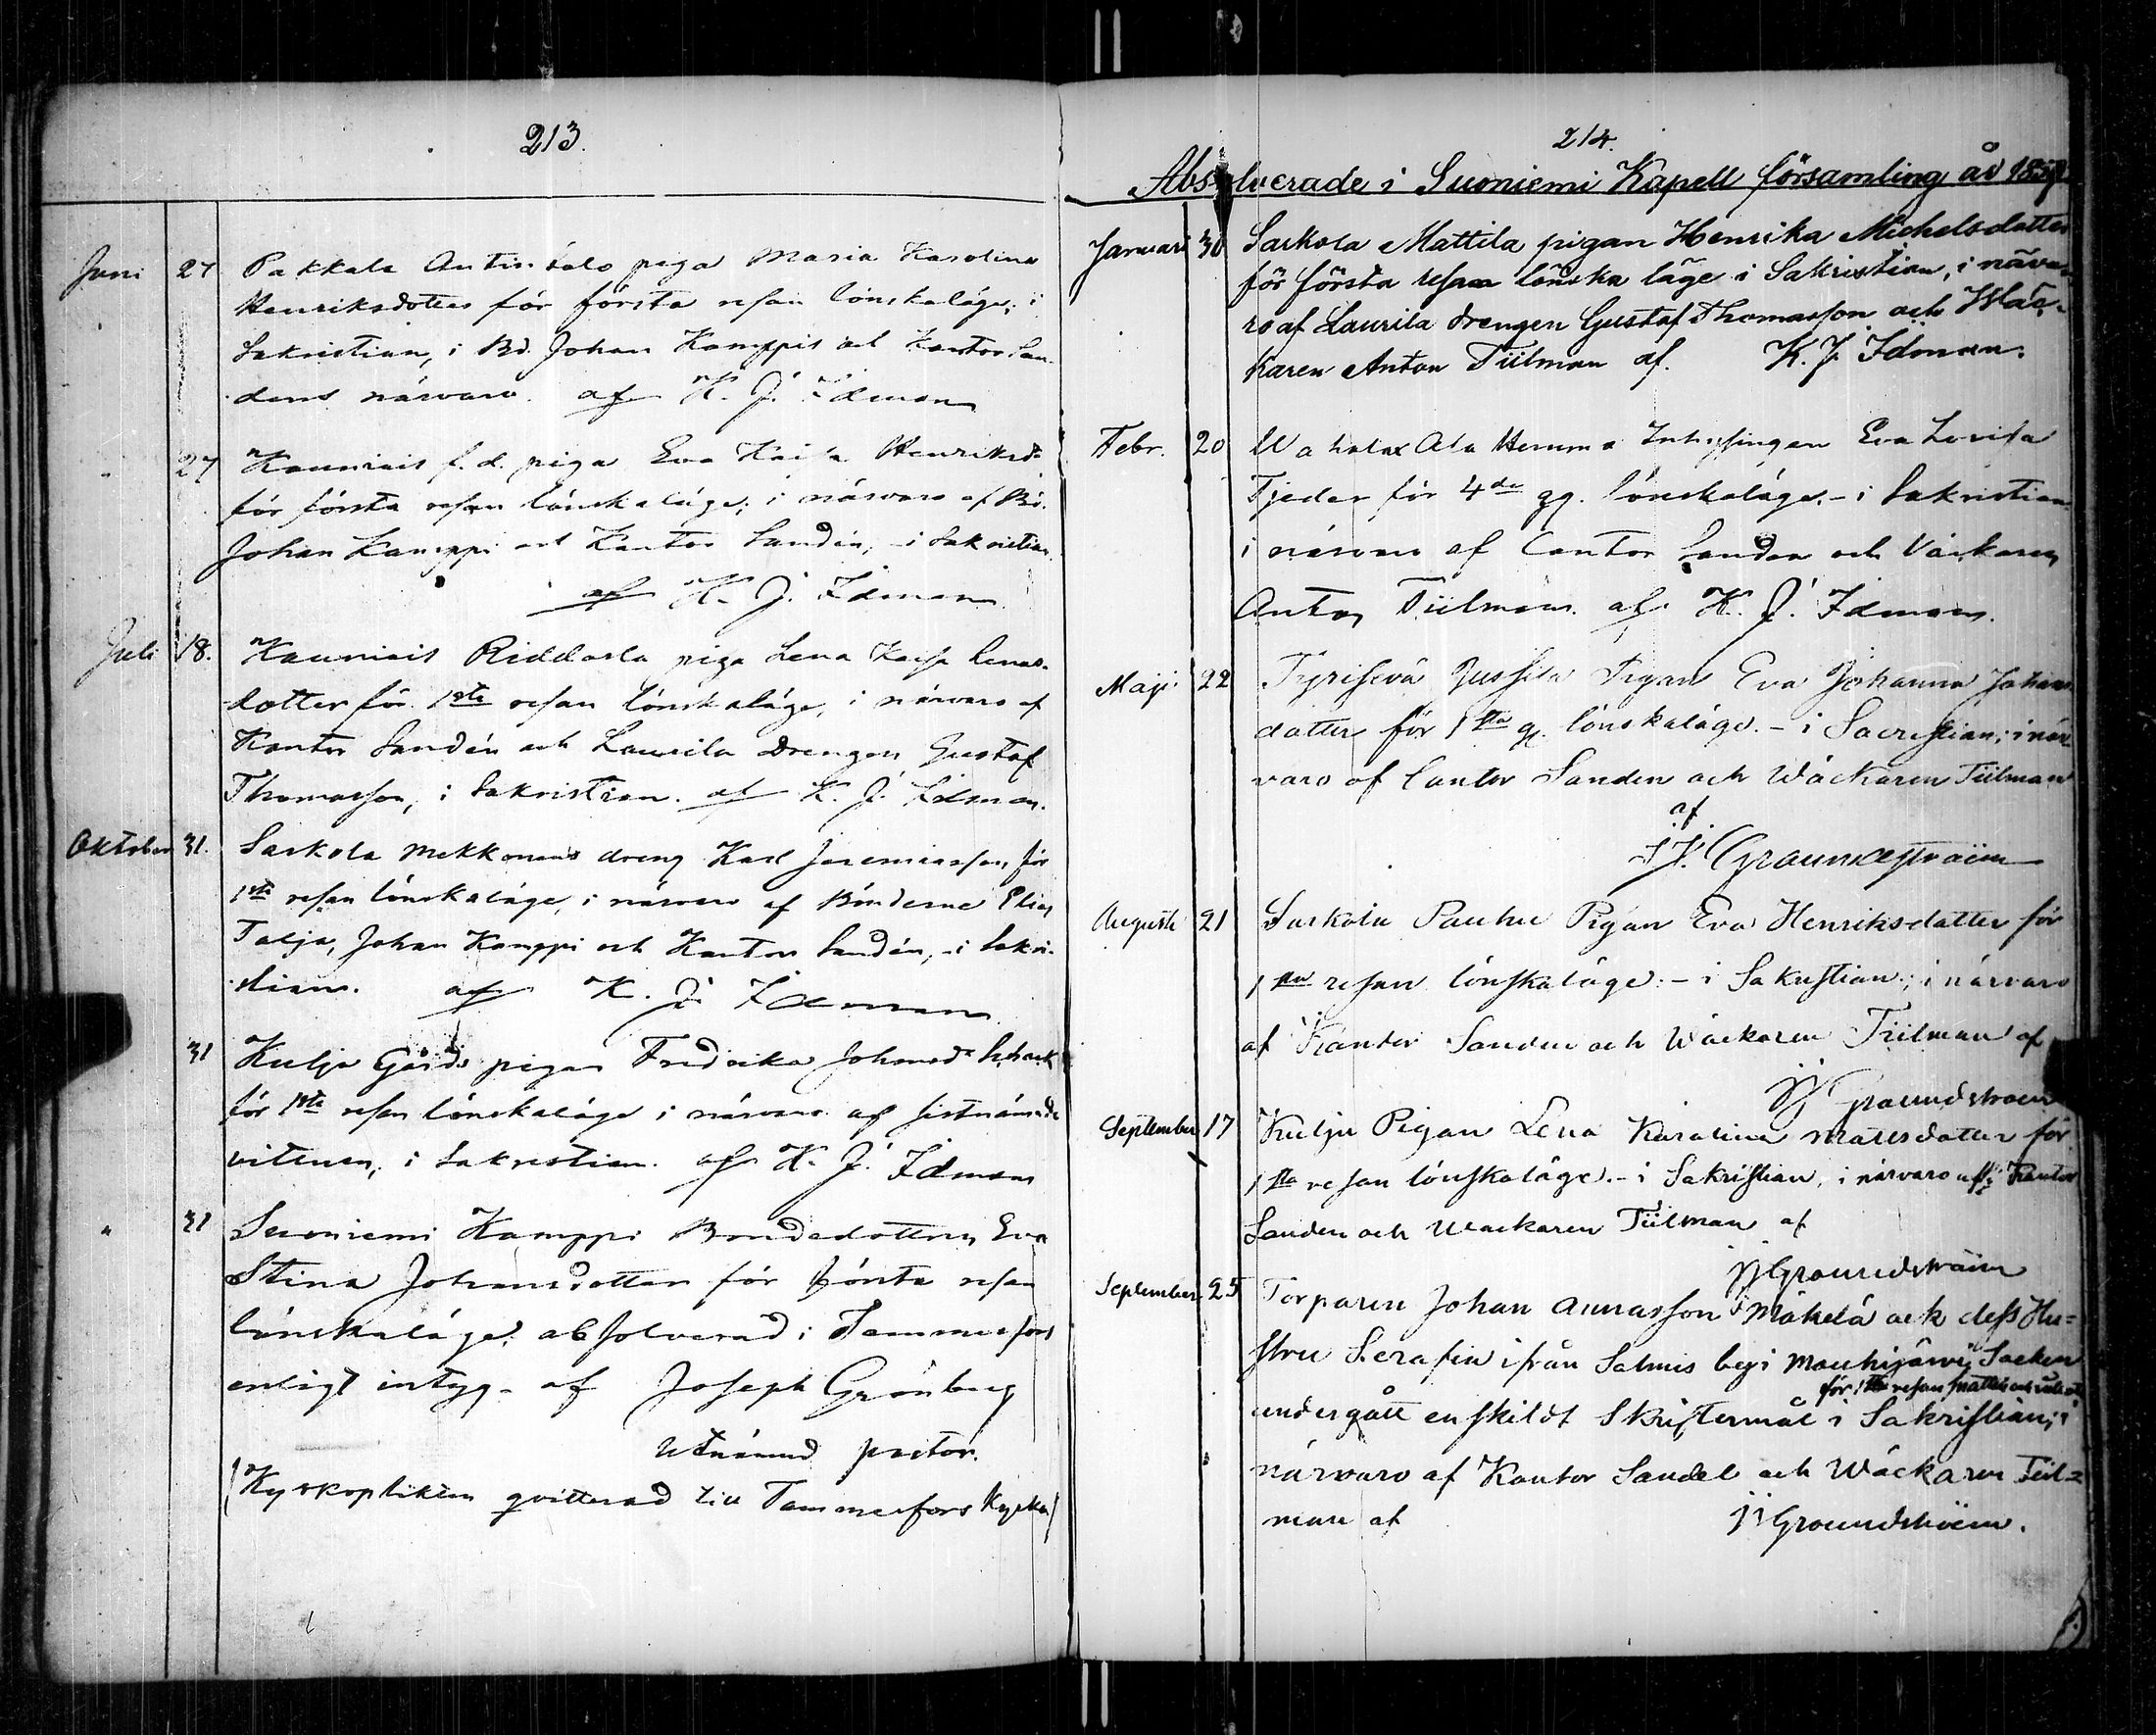 213.
Juni 27 Pakkala Antin talo piga Maria Karolina
Henriksdotter för första resan lönskaläge; i
Sakristian, i Bd. Johan Kamppis och Kantor San-
dens närvaro. af K. J. Idman
" 27 Kauniais f. d. piga Eva Kaisa Henriksdr
för första resan lönskaläge; i närvaro af Bd.
Johan Kamppi och Kantor Sandén, i Sakristian
af K. J. Idman
Juli 18. Kauniais Riddarla piga Lena Kaisa Lenas-
dotter för 1sta resan lönskaläge, i närvaro af
Kantor Sandén och Laurila Drengen Gustaf
Thomasson, i Sakristian. af K. J. Idman.
Oktober 31. Sarkola Mekkonens dreng Karl Jeremiasson, för
1sta resan lönskaläge, i närvaro af Bönderne Elias
Talja, Johan Kamppi och Kantor Sandén, i Sakri-
stian. af K. J. Idman
31 Kulju Gårds pigan Fredrika Johansdr
för 1sta resan lönskaläge i närvaro af sistnämnda
vitnen, i Sakristian. af K. J. Idman
" 31 Suoniemi Kamppi Bondedottern Eva
Stina Johansdotter för första resan
lönskaläge. absolverad i Tammerfors
enligt intyg af Joseph Grönberg
Utnämnd pastor.
(Kyrkoplikten qvitterad till Tammerfors Kyrka)
214.
Absolverade i Suoniemi Kapell församling år
Januari 30 Sarkola Mattila pigan Henrika Michelsdotter
för första resan lönska läge i Sakristian, i närva-
ro af Laurila drengen Gustaf Thomasson och Wäc-
karen Anton Tiilman af. K. J. Idman.
Febr. 20 Wahalax Ala Hemma Inhysingen Eva Lovisa
Tjeder för 4de gg. lönskaläge. - i Sakristian
i närvaro af Cantor Sanden och Väckaren
Anton Tiilman. af K. J. Idman.
Maji 22 Tyrisevä Jussila Pigan Eva Johanna Johans
dotter för 1sta g. lönskaläge. - i Sacristian; i när-
varo af Cantor Sanden och Wäckaren Tiilman
af
J J. Groundstroëm
Augusti 21 Sarkola Pauhu Pigan Eva Henriksdotter för
1sta resan lönskaläge. - i Sakristian; i närvaro
af Kantor Sanden och Wäckaren Tiilman af
JJ Groundstroem
September 17 Kulju Pigan Lena Karolina Mattsdotter för
1sta resan lönskaläge. - i Sakristian, i närvaro af Kantor
Sanden och Wäckaren Tiilman af
JJ Groundströem
September 25 Torparen Johan Annasson Mäkelä och dess Hu=
stru Serafin ifrån Salmis by i Mouhijärvi Socken
för 1sta resan
undergått enskildt Skriftermål i Sakristian; i
närvaro af Kantor Sandel och Wäckaren Tiil=
man af JJ Groundstroëm.